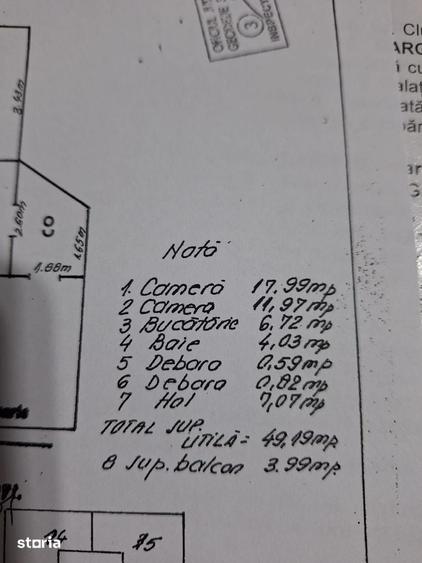 3
INSPECT
3.43m
2.60m
8
1.65m
1.88m
Notă
1. Cameră 17.99mp
2 Camera 11,97mp
3 Bucătărie 6,72 mp
4 Baie 4,03mp
5 Debara 0,59mp
6 Debara 0,82mp
7 Hol 7,07mp
TOTAL SUP.
UTILĂ= 49,19mp
8 Sup. balcon 3.99mp
14
15
storia